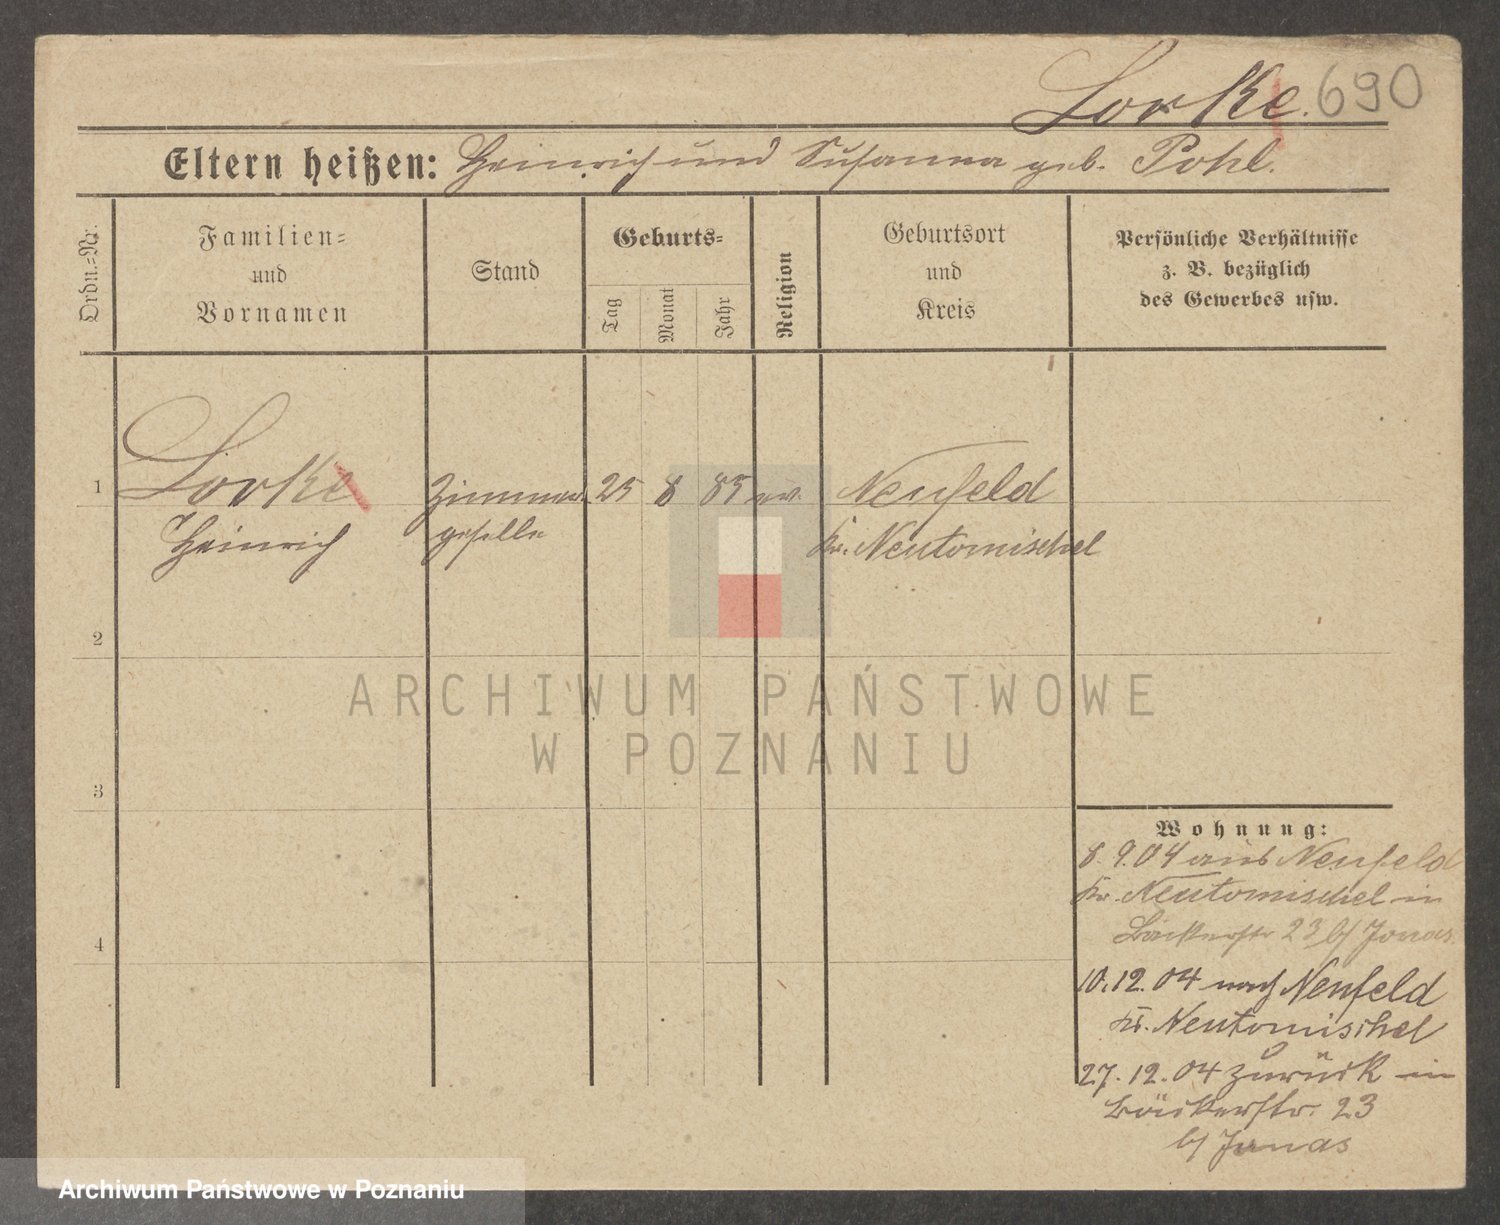 Lorke. 690
Eltern heißen: Heinrich und Susanna geb. Pohl.
Ordn.-Nr.
Familien-
und
Vornamen
Stand
Geburts-
Tag
Monat
Jahr
Religion
Geburtsort
und
Kreis
Persönliche Verhältnisse
z. B. bezüglich
des Gewerbes usw.
1 Lorke Zimmer 25 8 85 ev. Neufeld
Heinrich geselle Kr. Neutomischel
2
3
4
Wohnung:
8.9.04 aus Neufeld
Kr. Neutomischel in
Bäckerstr 23 b/ Jonas.
10.12.04 nach Neufeld
Kr. Neutomischel
27.12.04 zurück in
Bäckerstr. 23
b/ Jonas
ARCHIWUM PAŃSTWOWE
W POZNANIU
Archiwum Państwowe w Poznaniu